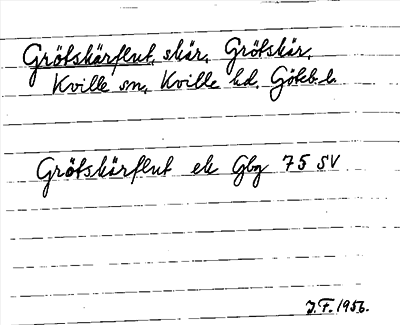 Grötskärflut, skär, Grötskär,
Kville sn, Kville hd. Göteb. l.
Grötskärflut ek Gbg 75 SV
J.F. 1956.